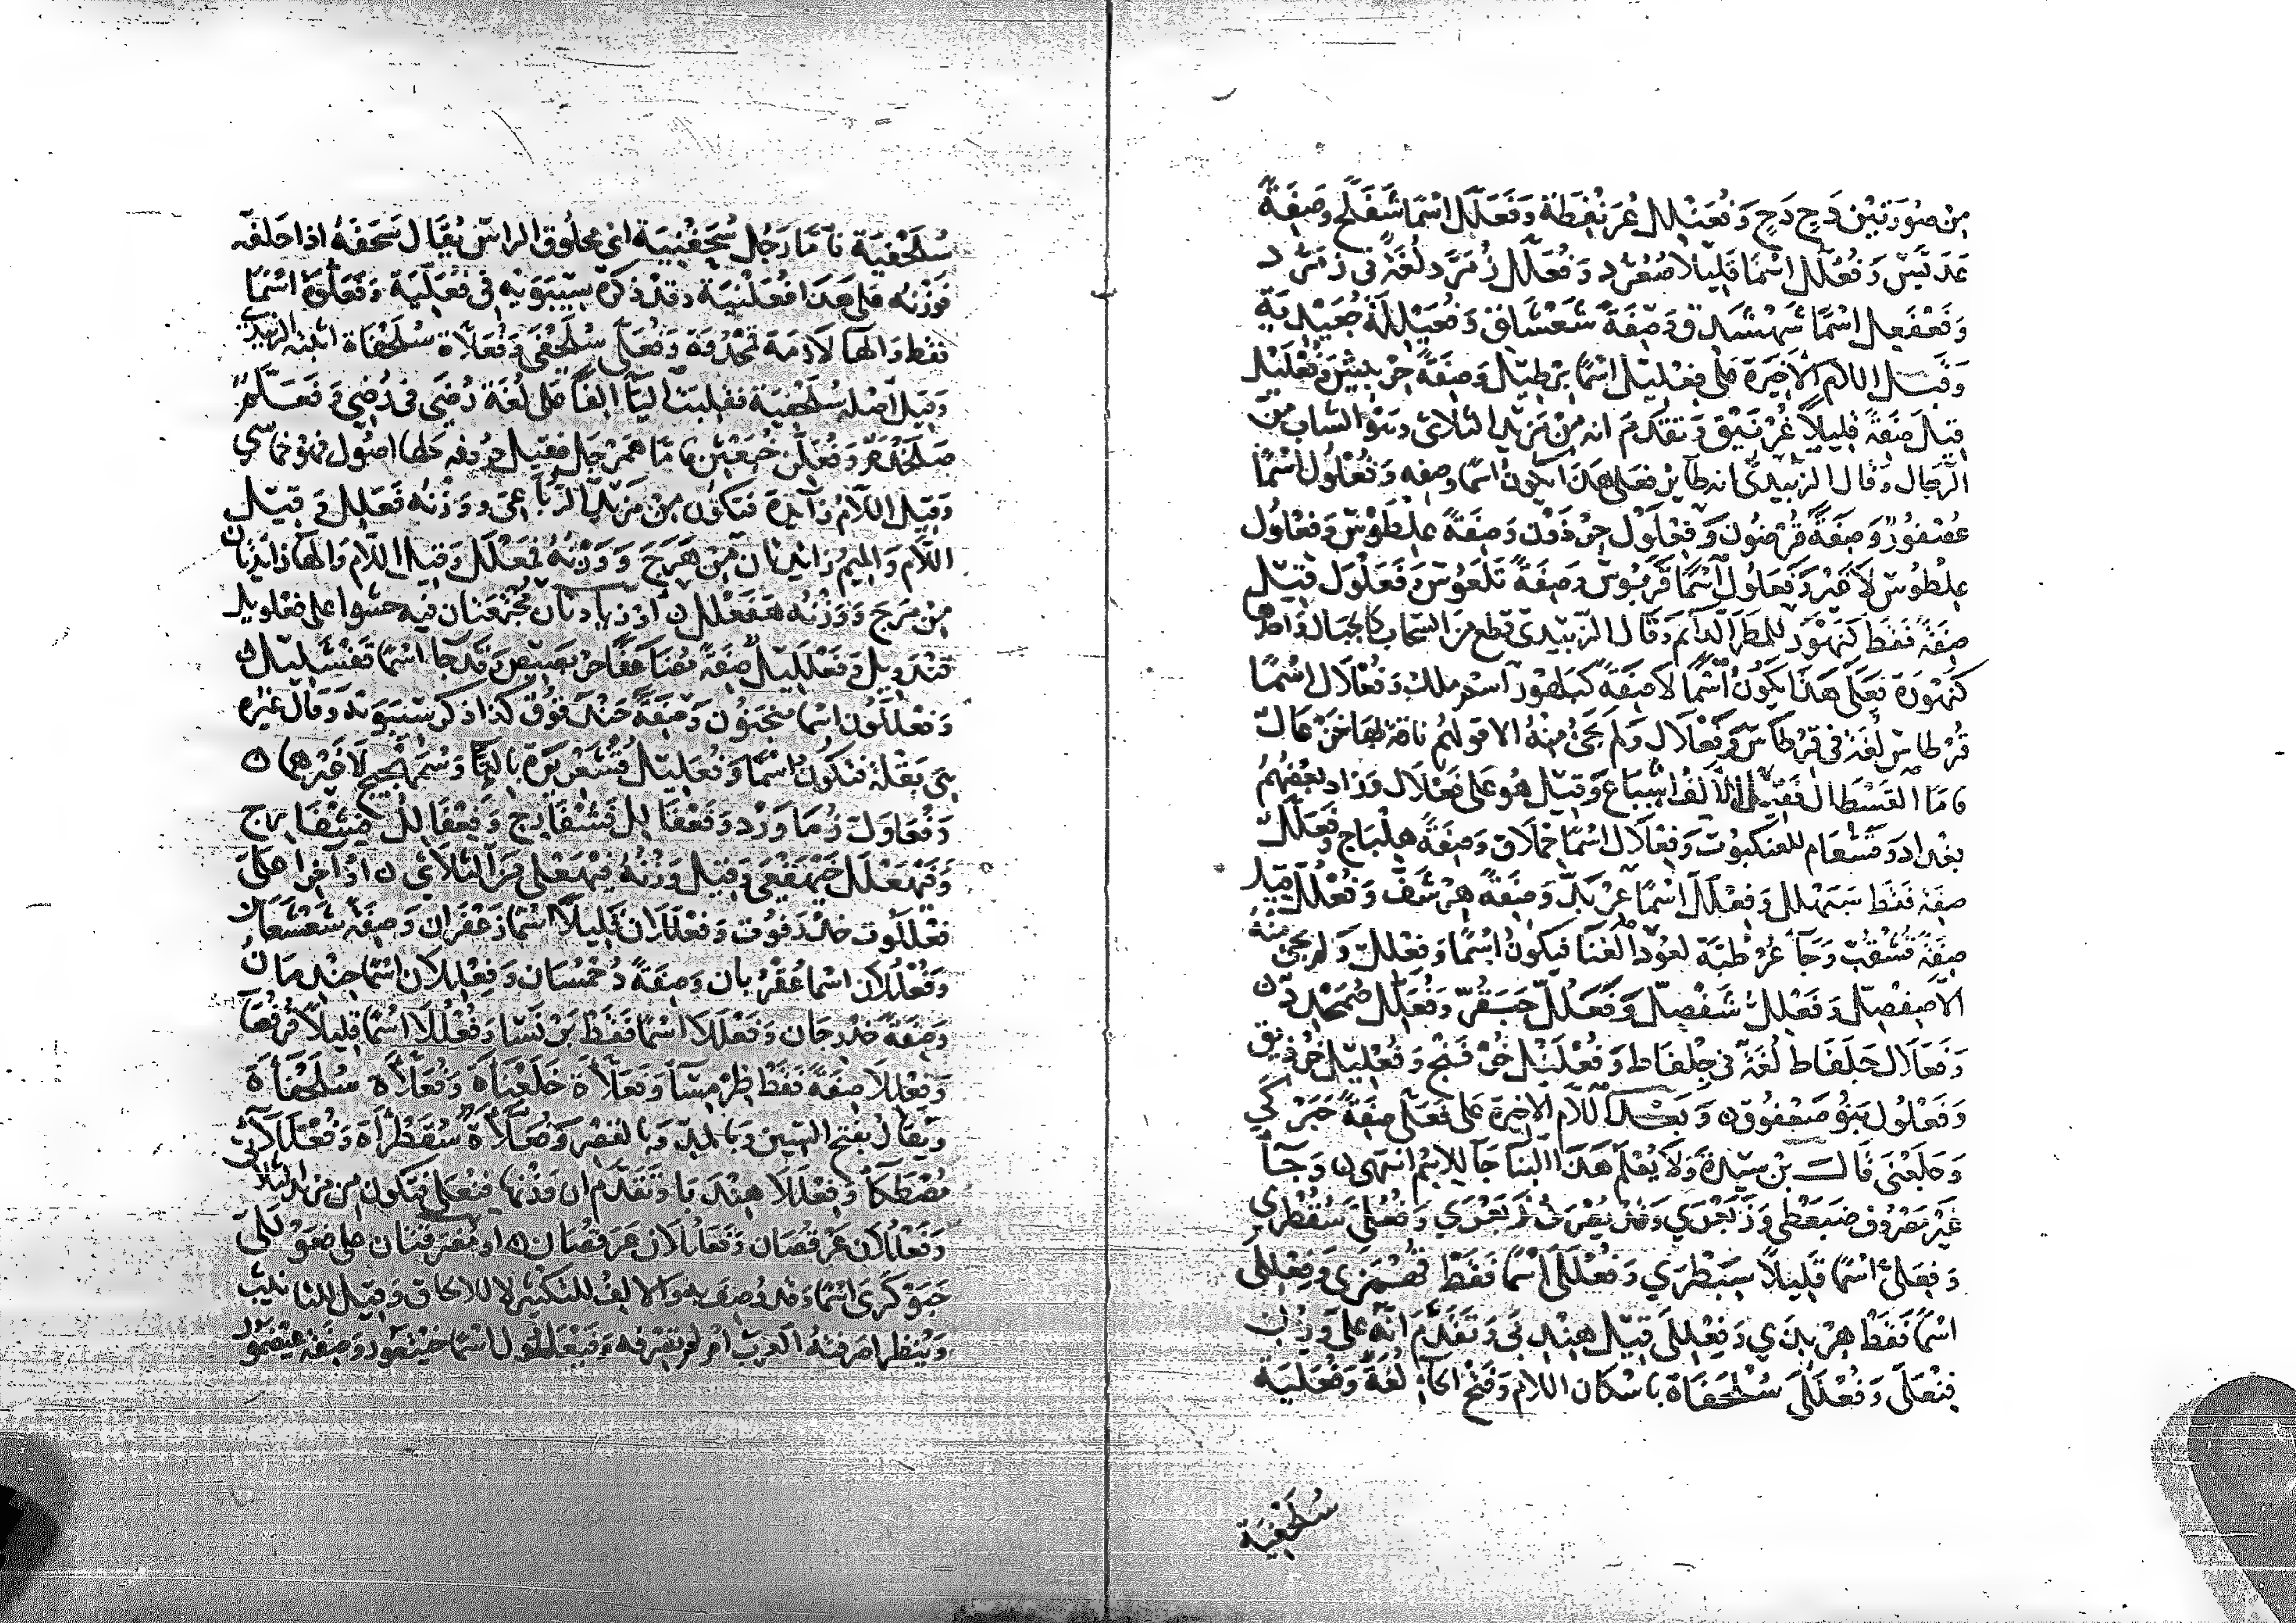 من صورتين دَحٍ دَحٍ وَفُعَنْلِل عُرَنْقُطَة وَفَعَلَّل اسْمًا شَفَلَّح وصِفَةً
عَدَبَّس وَفُعُلُّل اسْمًا قليلا صُعُرُّر وَفُعَلَّل زُمَرَّد لُغَة في زُمُرُّد
وَفَعْفَعِل اسْمًا شَهْشَدِق وَصِفَةً شَعْشَلِق وَفُعَيْلِلَة جُعَيْدِبَة
وَقَبْل اللام الأخيرَة على فِعْلِيل اسْمًا بِرْطِيل وَصِفَةً حِرْبِيش وَفُعْلَيْل
قِيلَ صِفَةً قليلاً غُرْنَيْق وَتقدم انه مِنْ مَزِيد الثلاثى وَهُوَ الشاب من
الرجال وَقال الزبيدى فعلى هذا يكون اسما وصفه وَفُعْلُول اسْمًا
عُصْفُور وَصِفَةً قُرْضُوب وَفِعْلَوْل حِرْذَوْن وَصِفَةً عِلْطَوْس وَفِعْلُول
عِلْطُوس لا غَيْر وَفَعَلُول اسْمًا قَرَبُوس وَصِفَةً قَلَعُوس وَفَعَلْوَل قيل
صِفَةً فَقَط كَنَهْوَر للمطر الدائم وَقال الزبيدى قطع من السحاب كالجبال واحدها
كَنَهْوَرَة فَعَلَى هَذَا يَكُونُ اسْمًا لا صِفَةً كَبَلَهْوَر اسم ملك وَفُعْلَال اسْمًا
قُرْطاس لُغَة فى قِرْطَاس وَفَعْلَال وَلم يَجِئ مِنْهُ الا قولهم ناقة بها خَزْعَال
فامّا القَسْطَال فقيل الالف اشباع وَقيل هُوَ على فَعْلَال وَزاد بعضهم
بغداد وَقَشْعَام للعنكبوت وَفِعْلَال اسْمًا حِمْلَاق وَصِفَةً هِلْبَاج وَفَعَلَّل
صفة فقط سَبَهْلَل وَفِعْلَلّ اسْمًا عِرْبَدّ وَصِفَةً هِرْشَفّ وَفُعْلُلّ قيل
صِفَةً قُسْقُبّ وَجَاء عُرْطُبَّة لعُود الغنا فيكون اسْمًا وَفِعْلِلّ وَلم يجئ مِنْهُ
الا صِفْصِلّ وَفَعْلِلّ شَفْصِلّ وَفَعَلُلّ حَبَقُرّ وَفُعَلِّل صُمَخْدِد
وَفَعَلَّال جَلَفَّاط لُغَة فى جِلْفَاط وَفُعْلُنْل خُرْفُنْج وَفُعْلِيل خُرْنِيق
وَفَعْلُول بَنُو صَعْفُوق وَبَعْد اللام الاخيرة على فَعَلَّى صِفَةً حَبَرْكَى
وَجَلَعْبَى قالَ بن سِيدَة وَلا يُعْلم هَذَا البنا جَا للاسم انتهى وَجاء
غَيْر مَعْرُوف ضَبَغْطَى وَزَبَعْرَى وَقُد يُعْرَف زَبَعْرَى وَفُعُلَّى سُقُطْرَى
وَفِعَلَّى اسْمًا قَلِيلاً سِبَطْرَى وَفُعْلَلَى اسْمًا فَقَط قُهْمَزَى وَفِعْلِلَى
اسْمًا فَقَط هِرْبِذَى وَفِعْلَلَى قِيل هِنْدَبَى وَتَقَدَّم انَّه على وَزْن
فِنْعَلَى وَفُعْلَلَى سُلْحَفَاة باسكان اللام وَفتح الحاء لُغَة وَفُعَلِّيَة
سُلَحْفِيَة
سُلَحْفِيَة فأمّا رَجُل سُحَفْنِيَة اى محلوق الراس يُقَال سَحَفَهُ اذا حلقه
فوزنه على هذا فُعَلْنِيَة وقد ذكره سيبويه فى فُعَلِّيَة وَفَعَلُّوَة اسْمًا
فقط والها لازمة قَمَحْدُوَة وَفُعَلَّى سُلَحْفَى وَفُعَلَّاة سُلَحْفَاة اثبته الزبيدى
وقيل اصله سُلَحْفِيَة فقلبت اليا الفا على لُغَة رُضَى فى رُضِىَ وَفَعَلَّم
صَلَخْدَم وَفُعَلِّن خُبَعْثِن فأمّا هَمَرْجَل فقيل حروفه كلها اصُول فهو خماسى
وَقيل اللام زائدة فيكون مِنْ مَزِيد الرباعى وَوَزْنُه فَعَلَّل وَقيل
اللام وَالميم زائدتان مِنْ هَرَجَ وَوَزْنُهُ فَمَعْلَل وَقيل اللام وَالها زائدتان
مِنْ مَرَج وَوَزْنُه هَفَعْلَل او زيادتان مُجْتَمِعَتَان فيه حشوا على فَعْلَوِيل
قَنْدَوِيل وَفَعْلَلِيل صِفَةً مُضَاعَفًا حَرْبَصِيص وَقَد جا اسْمًا قَفْشَلِيل
وَفَعْلَلُول اسْمًا مَنْجَنُون وَصِفَةً حَنْدَقُوق كذا ذكر سيبويه وَقال غيره
هى بَقْلَة فَتكون اسْمًا وَفُعَلِيل قُشَعْرِيرَة بالتا وَسُمَهْجِيج لا غيرهما
وَفَعَاوَل زُمَاوَرْد وَفُعْفَالِل فُشْفَارِج وَفِعْفَالِل فِشْفَارِج
وَفَيْهَعْلَل خَيْهَفْعَى وَقيل وَزْنُهُ فَيْهَعْلَى مِنَ الثلاثى او آخرا على
فَعْلَلُوت حَنْدَقُوت وَفَعْلَلَان قليلاً اسْمًا زَعْفَران وَصِفَةً شَعْشَعَان
وَفُعْلُلَان اسْمًا عُقْرُبان وَصِفَةً دُحْمُسَان وَفِعْلِلَان اسْمًا حِنْدِمَان
وَصِفَةً حِدْرِجَان وَفَعْلَلَا اسْمًا فَقَطْ بَرْنَسَا وَفُعْلُلَا اسْمًا قليلاً قُرْفُصَا
وَفِعْلِلَا صِفَةً فَقَطْ طِرْمِسَاء وَفَعَلَّاة خَلَعْبَاة وَفُعَلَّاة سُلَحْفَاة
وَيُقَال بفتح السين وَبالمد وَبالقصر وَفُعُلَّاة سُقُطْرَاة وَفُعْلَلَا
مُصْطَكَا وَفِعْلَلَا هِنْدَبَا وَتَقَدَّم ان وَزْنها فِنْعَلَا فيكون من مزيد الثلاثى
وَفَعْلُلَان عَرْقُصَان وَفَعَنْلُلَان عَرَنْقُصَان او مُفْتَرِقَتَان على فَعَوْلَلَى
حَبَوْكَرَى اسْمًا وَقد وُصِفَ به وَالالف للتكثير لا للالحاق وَقيل للتانيث
وَيُنْظر اصرفته العرب ام لم تصرفه وَفَيْعَلُول اسْمًا خَيْتَعُور وَصِفَة عَيْضَمُوز